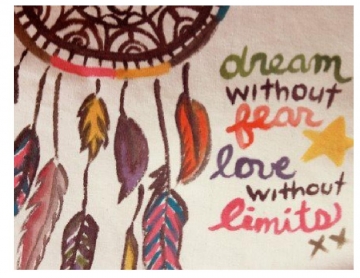 dream
without
fear
love
without
limits
xx